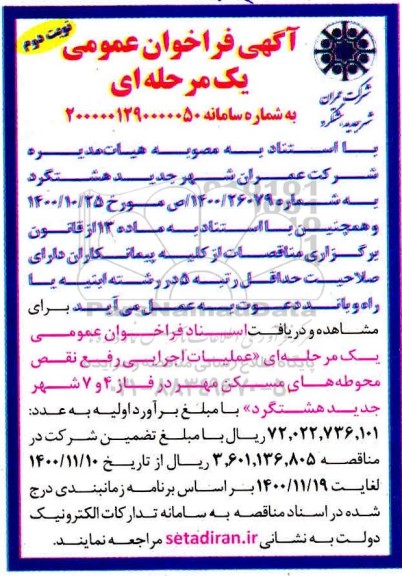 نوبت دوم
آگهی فراخوان عمومی
یک مرحله ای
به شماره سامانه ۲۰۰۰۰۰۱۲۹۰۰۰۰۰۵۰
شرکت عمران
شهر جدید هشتگرد
با استناد به مصوبه هیات مدیره
شرکت عمران شهر جدید هشتگرد
به شماره ۱۴۰۰/۲۶۰۷۹/ص مورخ ۱۴۰۰/۱۰/۲۵
و همچنین با استناد به ماده ۱۳ از قانون
برگزاری مناقصات از کلیه پیمانکاران دارای
صلاحیت حداقل رتبه ۵ در رشته ابنیه یا
راه و باند دعوت به عمل می آید برای
مشاهده و دریافت اسناد فراخوان عمومی
یک مرحله ای «عملیات اجرایی رفع نقص
محوطه های مسکن مهر در فاز ۴ و ۷ شهر
جدید هشتگرد» با مبلغ برآورد اولیه به عدد:
۷۲,۰۲۲,۷۳۶,۱۰۱ ریال با مبلغ تضمین شرکت در
مناقصه ۳,۶۰۱,۱۳۶,۸۰۵ ریال از تاریخ ۱۴۰۰/۱۱/۱۰
لغایت ۱۴۰۰/۱۱/۱۹ بر اساس برنامه زمانبندی درج
شده در اسناد مناقصه به سامانه تدارکات الکترونیک
دولت به نشانی setadiran.ir مراجعه نمایند.